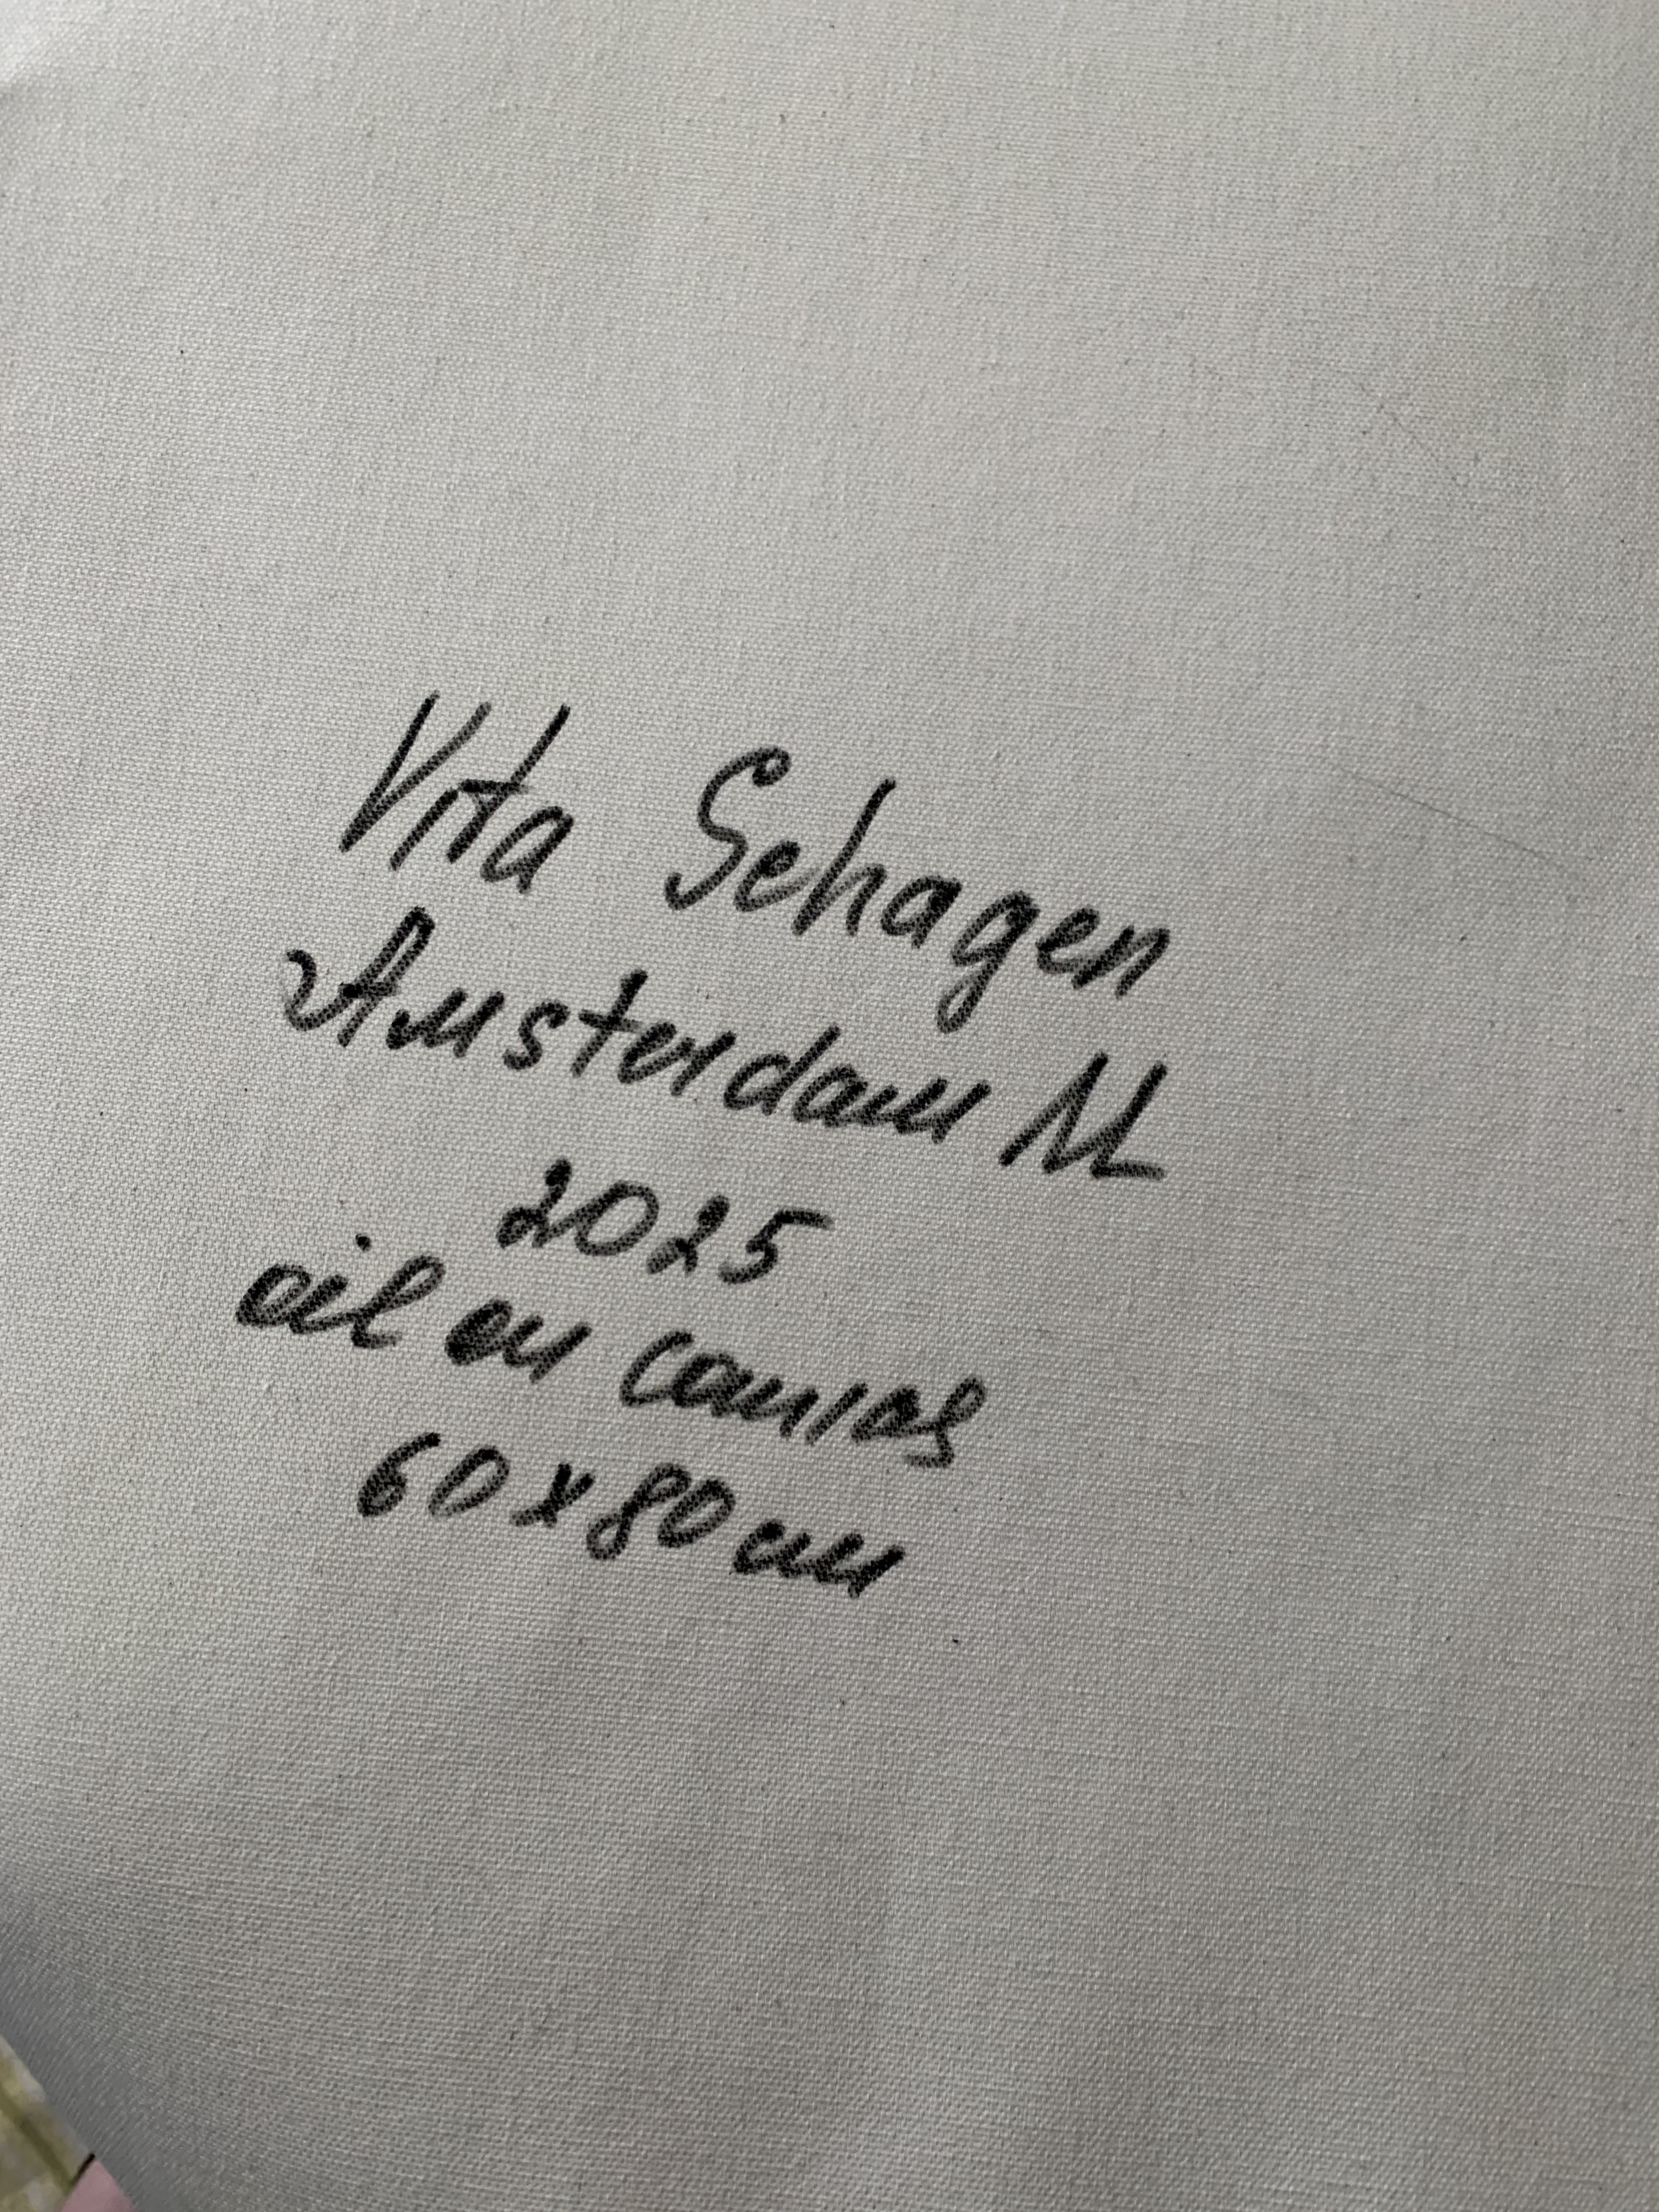 Vita Schagen
Amsterdam NL
2025
oil on canvas
60x80cm